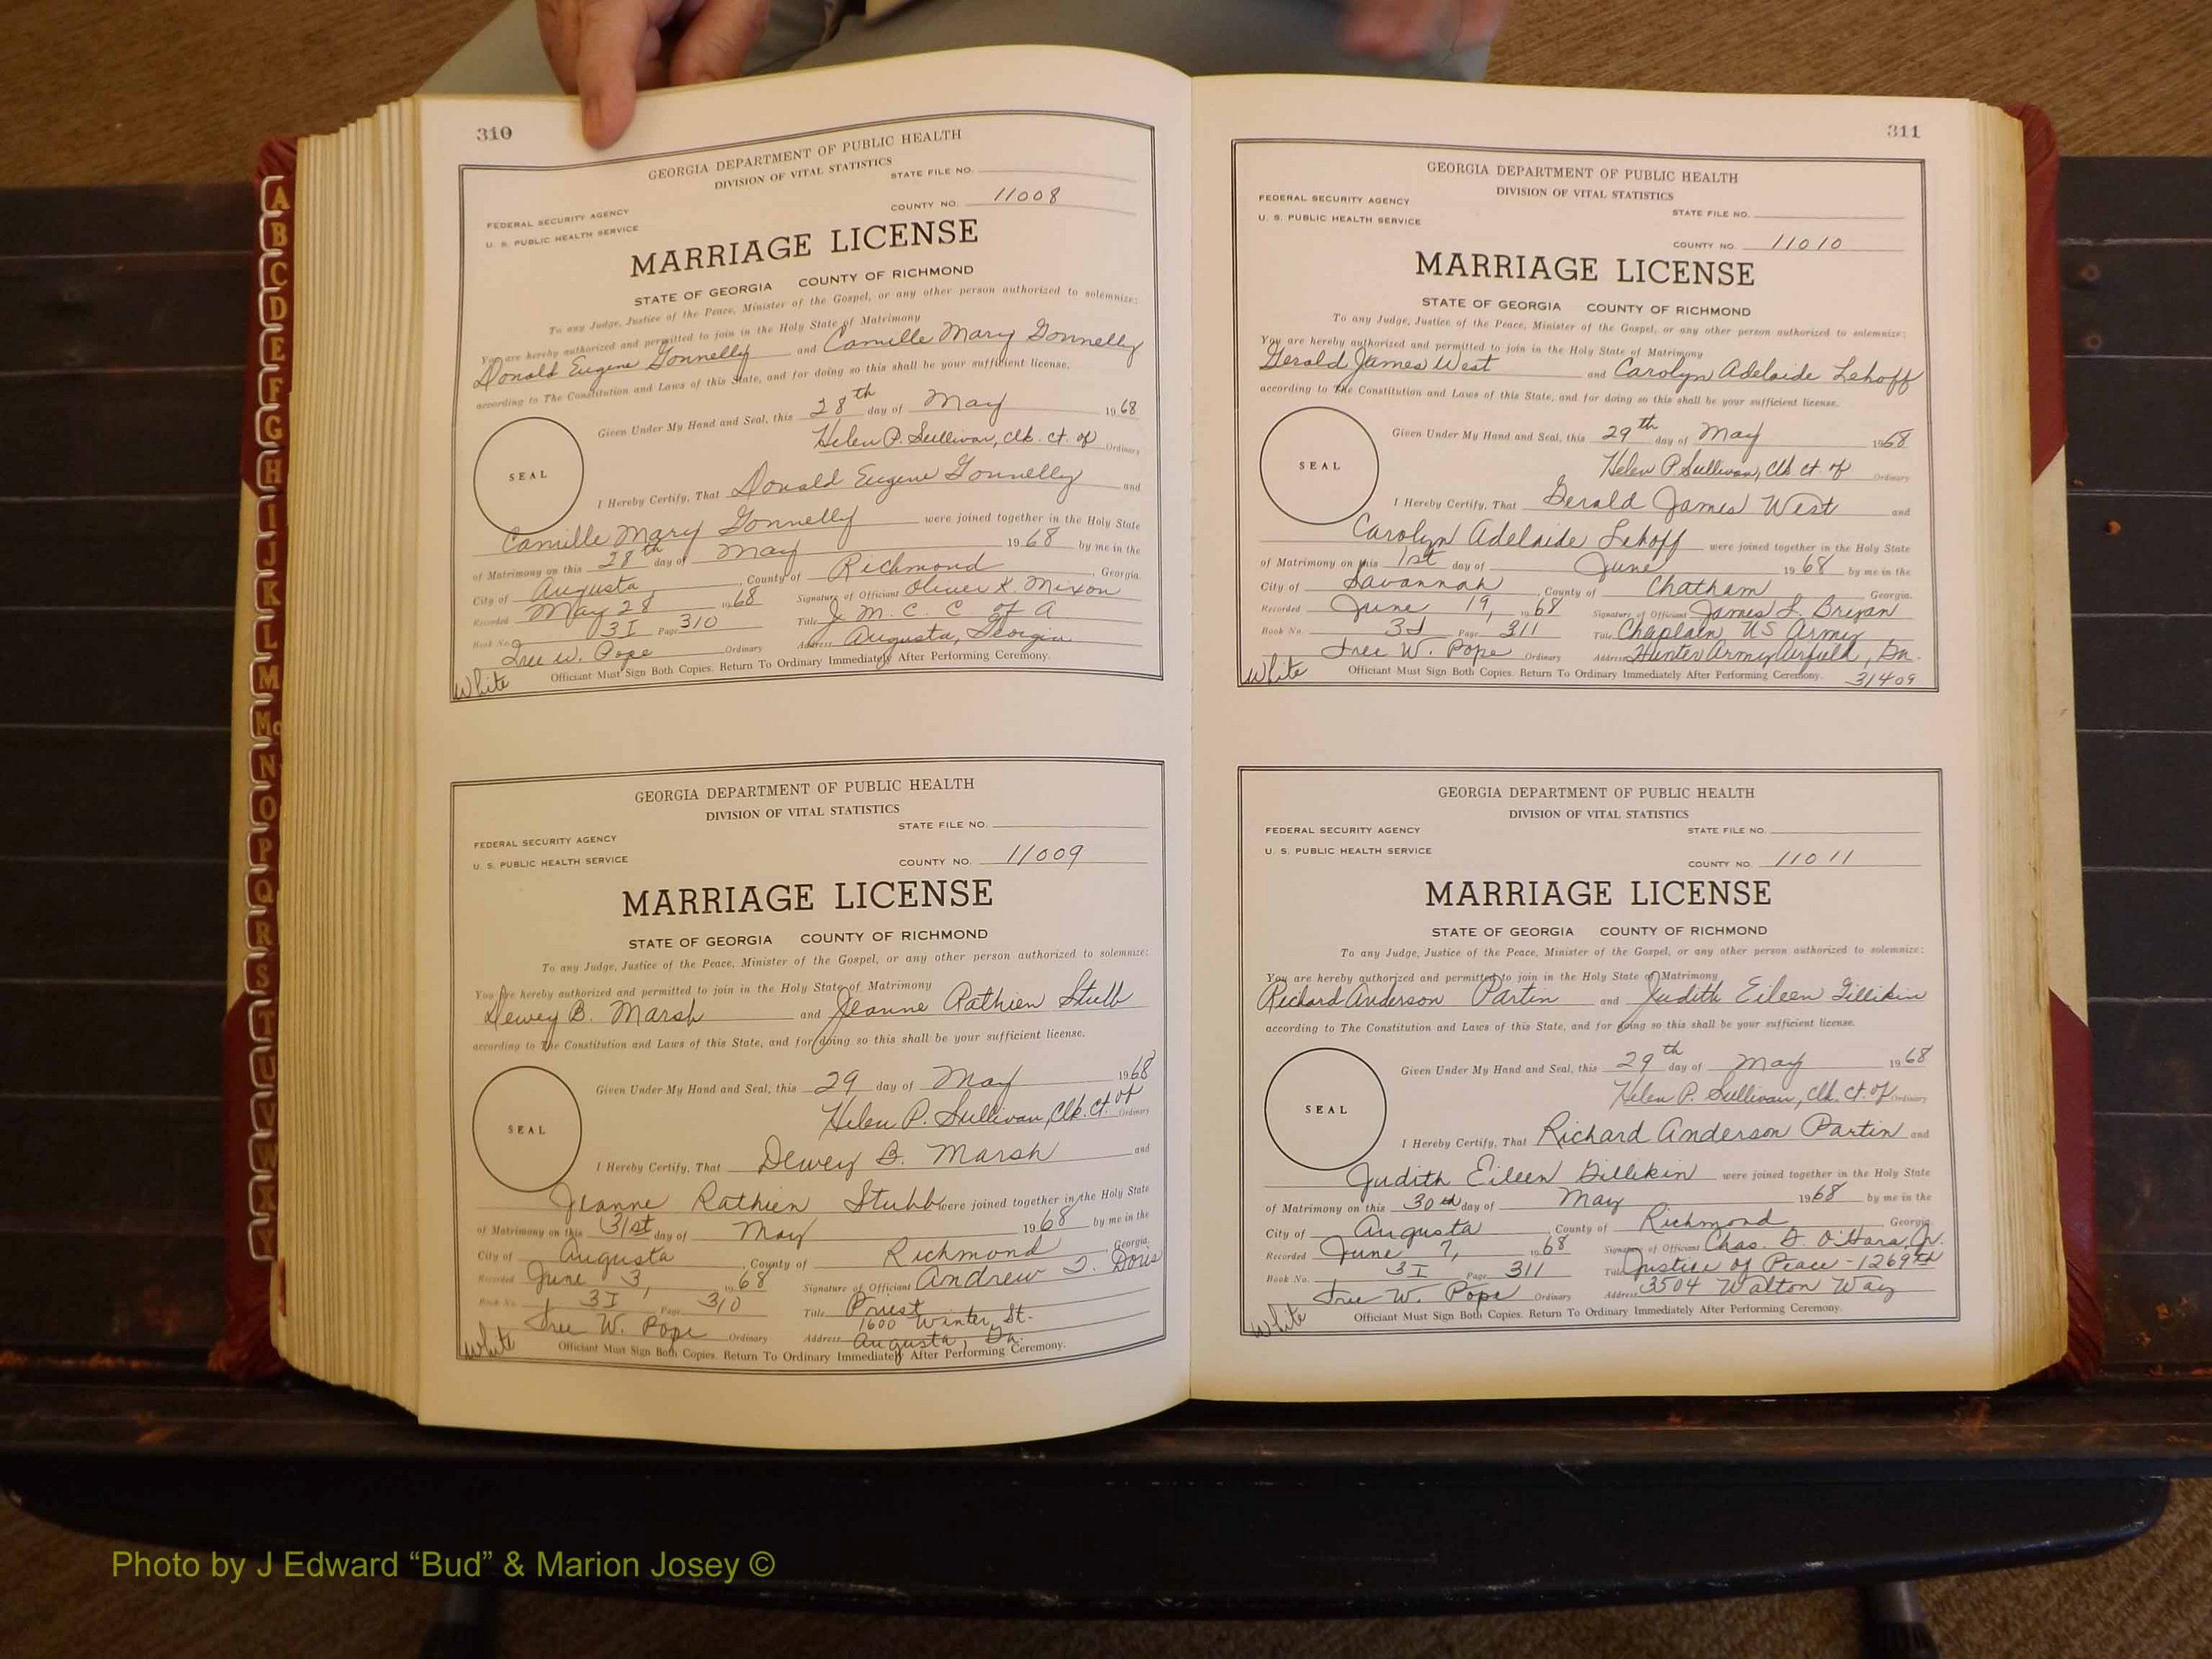 A
B
C
D
E
F
G
H
I
J
K
L
M
Mc
N
O
P
Q
R
S
T
U
V
W
X
Y
310
GEORGIA DEPARTMENT OF PUBLIC HEALTH
DIVISION OF VITAL STATISTICS
STATE FILE NO.
FEDERAL SECURITY AGENCY
U. S. PUBLIC HEALTH SERVICE
COUNTY NO. 11008
MARRIAGE LICENSE
STATE OF GEORGIA COUNTY OF RICHMOND
To any Judge, Justice of the Peace, Minister of the Gospel, or any other person authorized to solemnize:
You are hereby authorized and permitted to join in the Holy State of Matrimony
Donald Eugene Gonnelly and Camille Mary Gonnelly
according to The Constitution and Laws of this State, and for doing so this shall be your sufficient license.
Given Under My Hand and Seal, this 28th day of May 1968
Helen P. Sullivan, clk. ct. of Ordinary
SEAL
I Hereby Certify, That Donald Eugene Gonnelly and
Camille Mary Gonnelly were joined together in the Holy State
of Matrimony on this 28th day of May 1968 by me in the
City of Augusta, County of Richmond, Georgia.
Recorded May 28 1968 Signature of Officiant Oliver K. Mixon
Book No. 3I Page 310 Title J. M. C. C. of A
W. Pope Ordinary Address Augusta, Georgia
White Officiant Must Sign Both Copies. Return To Ordinary Immediately After Performing Ceremony.
GEORGIA DEPARTMENT OF PUBLIC HEALTH
DIVISION OF VITAL STATISTICS
STATE FILE NO.
FEDERAL SECURITY AGENCY
U. S. PUBLIC HEALTH SERVICE
COUNTY NO. 11009
MARRIAGE LICENSE
STATE OF GEORGIA COUNTY OF RICHMOND
To any Judge, Justice of the Peace, Minister of the Gospel, or any other person authorized to solemnize:
You are hereby authorized and permitted to join in the Holy State of Matrimony
Dewey B. Marsh and Jeanne Rathien Stubb
according to The Constitution and Laws of this State, and for doing so this shall be your sufficient license.
Given Under My Hand and Seal, this 29 day of May 1968
Helen P. Sullivan, Clk. Ct. of Ordinary
SEAL
I Hereby Certify, That Dewey B. Marsh and
Jeanne Rathien Stubb were joined together in the Holy State
of Matrimony on this 31st day of May 1968 by me in the
City of Augusta, County of Richmond, Georgia.
Recorded June 3, 1968 Signature of Officiant Andrew J. Doris
Book No. 3I Page 310 Title Priest
1600 Winter St.
W. Pope Ordinary Address Augusta, Ga.
White Officiant Must Sign Both Copies. Return To Ordinary Immediately After Performing Ceremony.
311
GEORGIA DEPARTMENT OF PUBLIC HEALTH
DIVISION OF VITAL STATISTICS
FEDERAL SECURITY AGENCY
U. S. PUBLIC HEALTH SERVICE
STATE FILE NO.
COUNTY NO. 11010
MARRIAGE LICENSE
STATE OF GEORGIA COUNTY OF RICHMOND
To any Judge, Justice of the Peace, Minister of the Gospel, or any other person authorized to solemnize:
You are hereby authorized and permitted to join in the Holy State of Matrimony
Gerald James West and Carolyn Adelaide Lehoff
according to The Constitution and Laws of this State, and for doing so this shall be your sufficient license.
Given Under My Hand and Seal, this 29th day of May 1968
Helen P. Sullivan, Clk ct. of Ordinary
SEAL
I Hereby Certify, That Gerald James West and
Carolyn Adelaide Lehoff were joined together in the Holy State
of Matrimony on this 1st day of June 1968 by me in the
City of Savannah, County of Chatham, Georgia.
Recorded June 19, 1968 Signature of Officiant James L. Bryan
Book No. 3I Page 311 Title Chaplain, US Army
W. Pope Ordinary Address Hunter Army Airfield, Ga.
White Officiant Must Sign Both Copies. Return To Ordinary Immediately After Performing Ceremony. 31409
GEORGIA DEPARTMENT OF PUBLIC HEALTH
DIVISION OF VITAL STATISTICS
FEDERAL SECURITY AGENCY
STATE FILE NO.
U. S. PUBLIC HEALTH SERVICE
COUNTY NO. 11011
MARRIAGE LICENSE
STATE OF GEORGIA COUNTY OF RICHMOND
To any Judge, Justice of the Peace, Minister of the Gospel, or any other person authorized to solemnize:
You are hereby authorized and permitted to join in the Holy State of Matrimony
Richard Anderson Partin and Judith Eileen Gillikin
according to The Constitution and Laws of this State, and for doing so this shall be your sufficient license.
Given Under My Hand and Seal, this 29th day of May 1968
Helen P. Sullivan, Clk. Ct. of Ordinary
SEAL
I Hereby Certify, That Richard Anderson Partin and
Judith Eileen Gillikin were joined together in the Holy State
of Matrimony on this 30th day of May 1968 by me in the
City of Augusta, County of Richmond, Georgia.
Recorded June 7, 1968 Signature of Officiant Chas. G. O'Hara, Jr.
Book No. 3I Page 311 Title Justice of Peace - 1269th
W. Pope Ordinary Address 3504 Walton Way
White Officiant Must Sign Both Copies. Return To Ordinary Immediately After Performing Ceremony.
Photo by J Edward “Bud” & Marion Josey ©